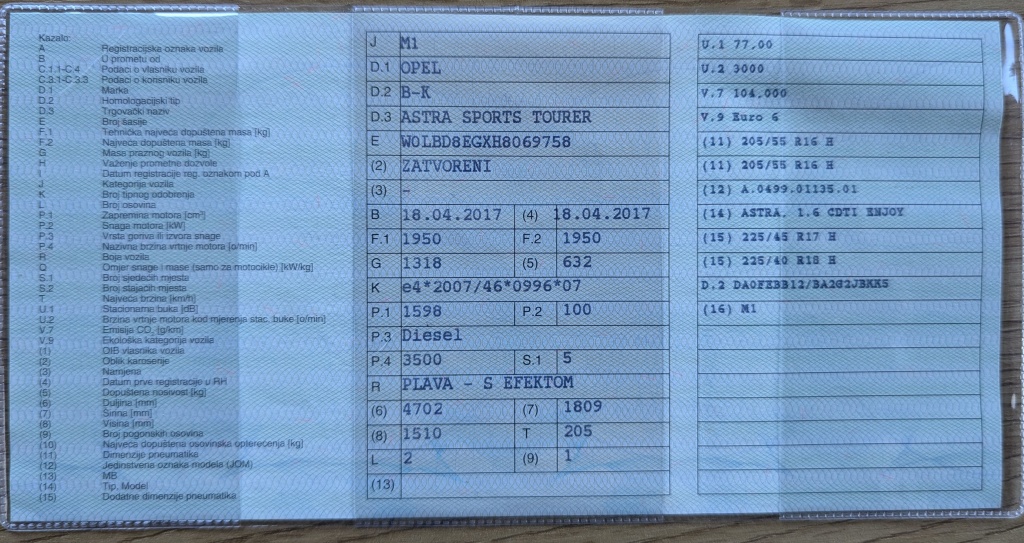 Kazalo:
A Registracijska oznaka vozila
B U prometu od
C.1.1-C.4 Podaci o vlasniku vozila
C.3.1-C 3.3 Podaci o korisniku vozila
D.1 Marka
D.2 Homologacijski tip
D.3 Trgovački naziv
E Broj šasije
F.1 Tehnička najveća dopuštena masa [kg]
F.2 Najveća dopuštena masa [kg]
G Masa praznog vozila [kg]
H Važenje prometne dozvole
I Datum registracije reg. oznakom pod A
J Kategorija vozila
K Broj tipnog odobrenja
L Broj osovina
P.1 Zapremina motora [cm³]
P.2 Snaga motora [kW]
P.3 Vrsta goriva ili izvora snage
P.4 Nazivna brzina vrtnje motora [o/min]
R Boja vozila
Q Omjer snage i mase (samo za motocikle) [kW/kg]
S.1 Broj sjedećih mjesta
S.2 Broj stajaćih mjesta
T Najveća brzina [km/h]
U.1 Stacionarna buka [dB]
U.2 Brzina vrtnje motora kod mjerenja stac. buke [o/min]
V.7 Emisija CO₂ [g/km]
V.9 Ekološka kategorija vozila
(1) OIB vlasnika vozila
(2) Oblik karoserije
(3) Namjena
(4) Datum prve registracije u RH
(5) Dopuštena nosivost [kg]
(6) Duljina [mm]
(7) Širina [mm]
(8) Visina [mm]
(9) Broj pogonskih osovina
(10) Najveća dopuštena osovinska opterećenja [kg]
(11) Dimenzije pneumatika
(12) Jedinstvena oznaka modela (JOM)
(13) MB
(14) Tip, Model
(15) Dodatne dimenzije pneumatika
J M1
D.1 OPEL
D.2 B-K
D.3 ASTRA SPORTS TOURER
E W0LBD8EGXH8069758
(2) ZATVORENI
(3) -
B 18.04.2017 (4) 18.04.2017
F.1 1950 F.2 1950
G 1318 (5) 632
K e4*2007/46*0996*07
P.1 1598 P.2 100
P.3 Diesel
P.4 3500 S.1 5
R PLAVA - S EFEKTOM
(6) 4702 (7) 1809
(8) 1510 T 205
L 2 (9) 1
(13)
U.1 77,00
U.2 3000
V.7 104,000
V.9 Euro 6
(11) 205/55 R16 H
(11) 205/55 R16 H
(12) A.0499.01135.01
(14) ASTRA, 1.6 CDTI ENJOY
(15) 225/45 R17 H
(15) 225/40 R18 H
D.2 DA0FEBB12/BA2G2JBKK5
(16) M1